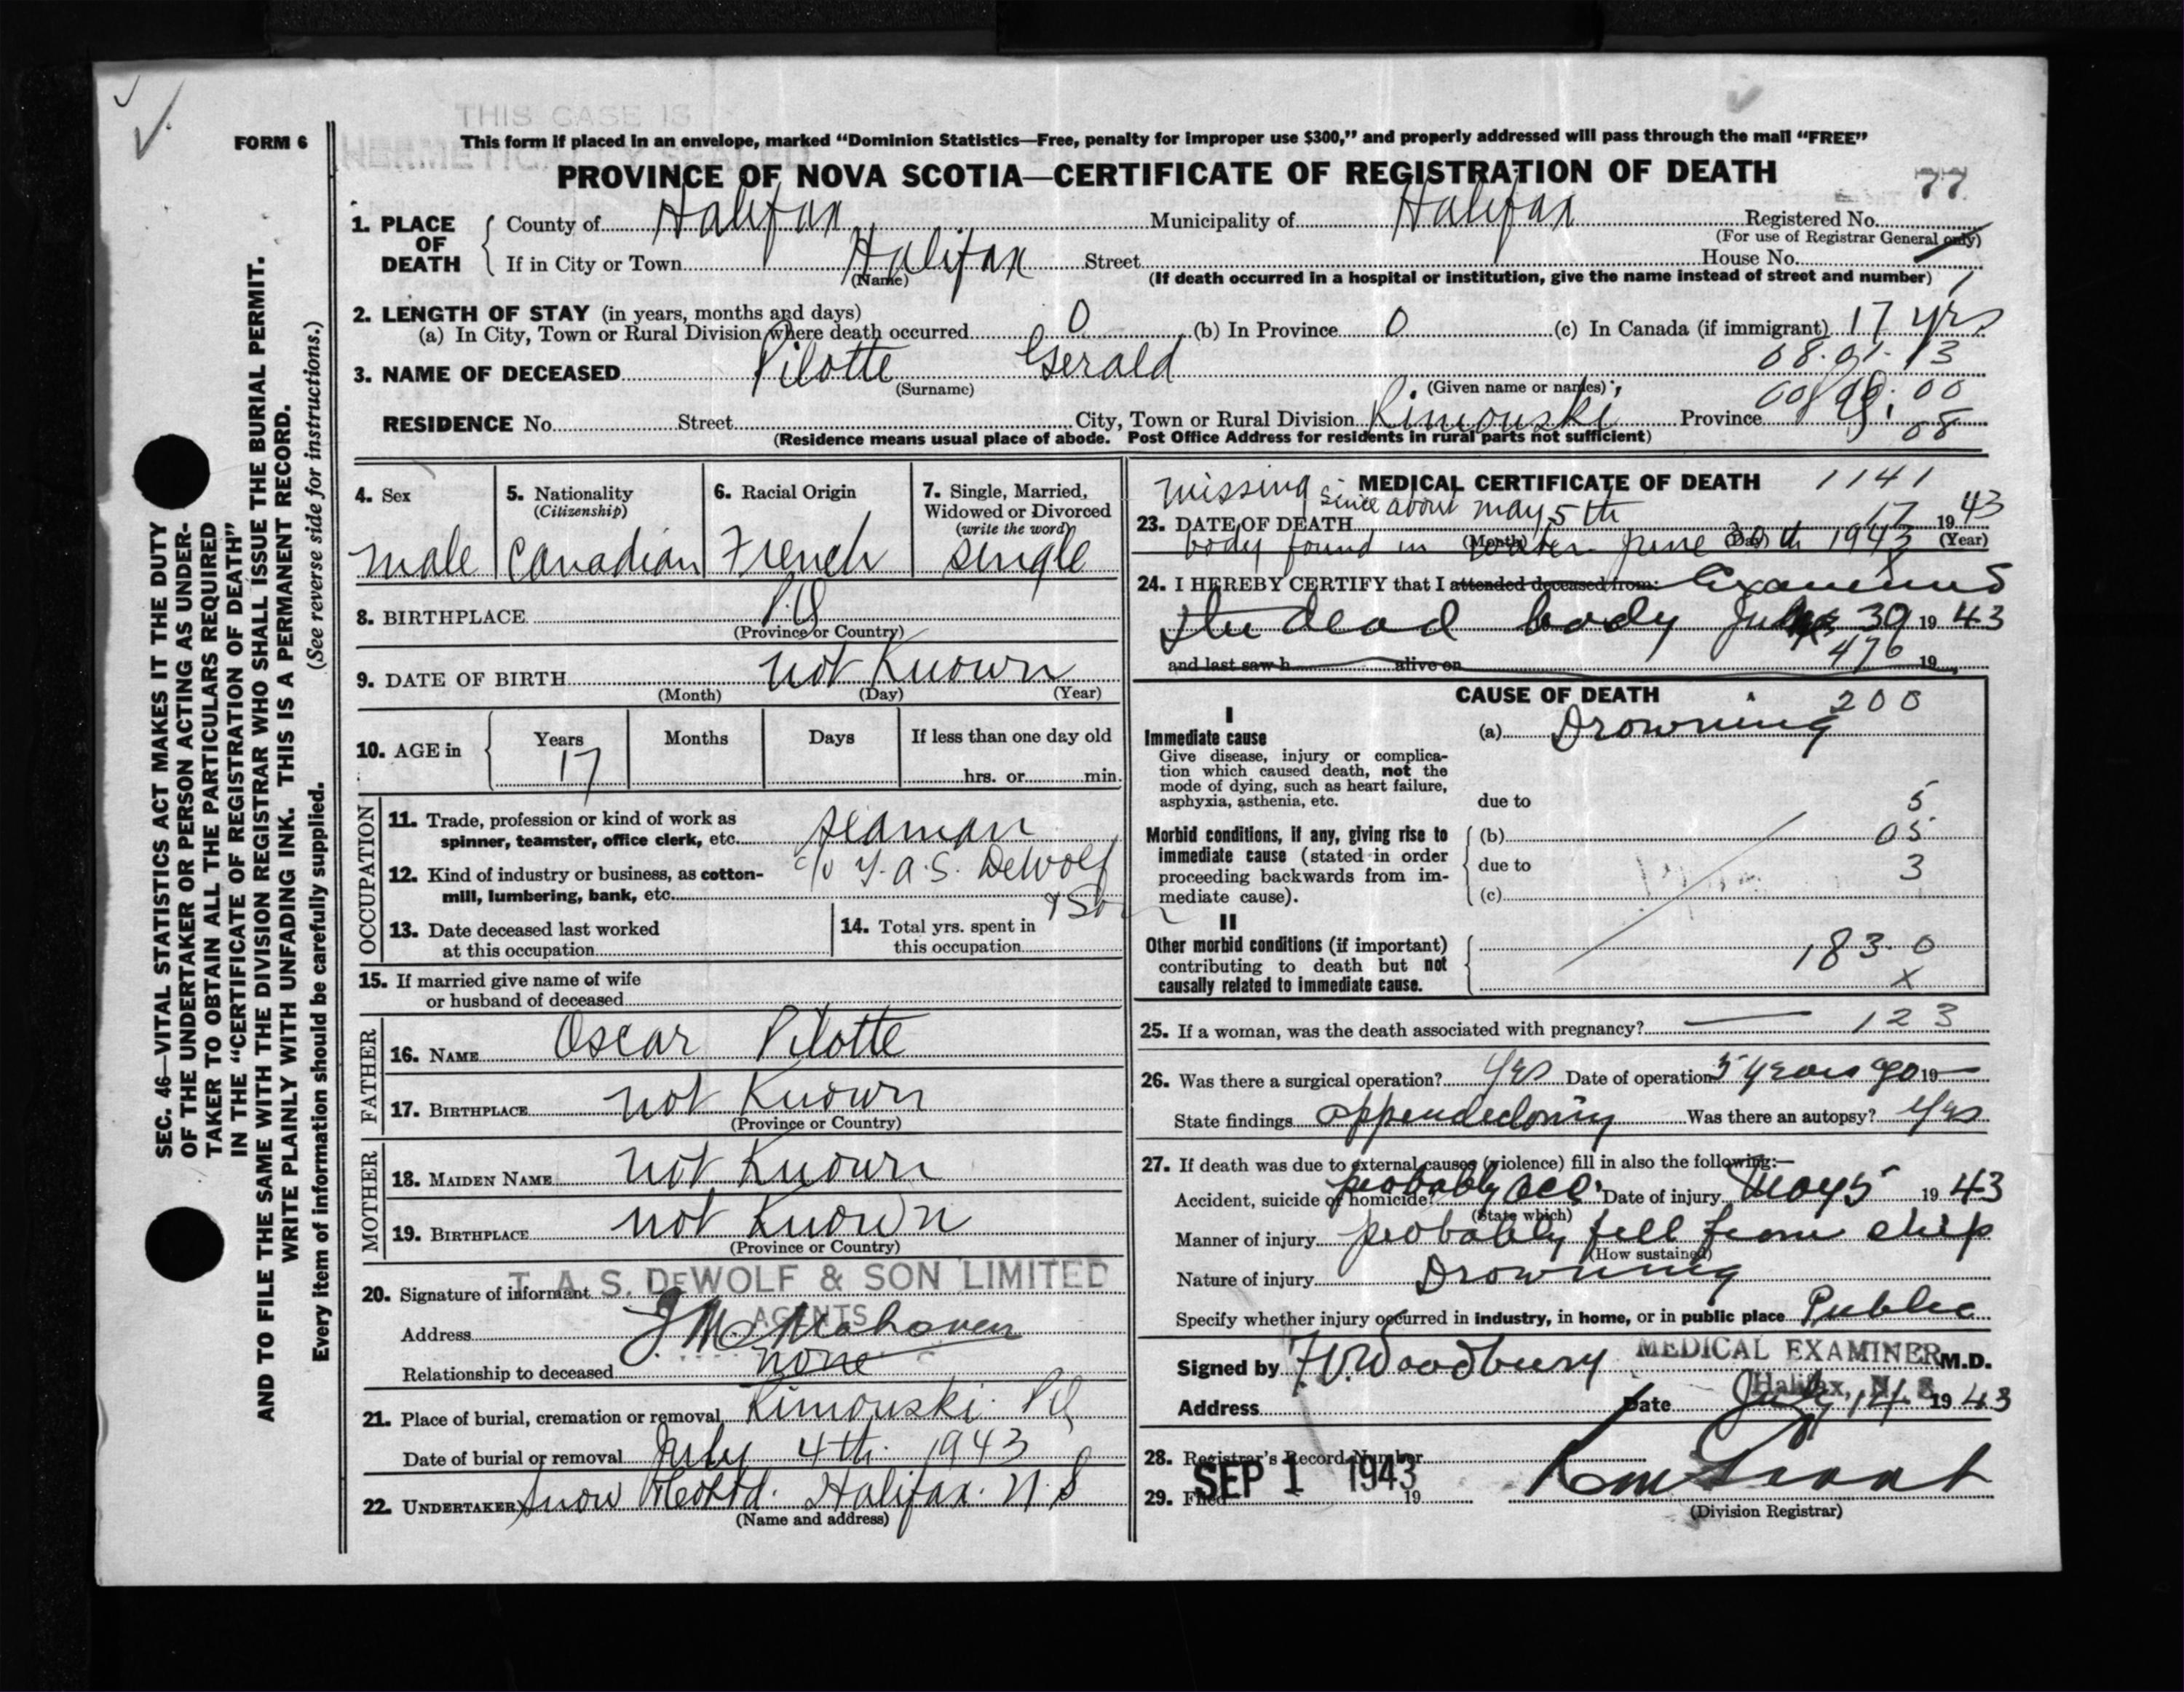 THIS CASE IS
HERMETICALLY SEALED
FORM 6
This form if placed in an envelope, marked “Dominion Statistics—Free, penalty for improper use $300,” and properly addressed will pass through the mail “FREE”
PROVINCE OF NOVA SCOTIA—CERTIFICATE OF REGISTRATION OF DEATH
77
1. PLACE OF DEATH
County of Halifax Municipality of Halifax Registered No.
(For use of Registrar General only)
If in City or Town Halifax Street House No.
(Name) (If death occurred in a hospital or institution, give the name instead of street and number) 1
2. LENGTH OF STAY (in years, months and days)
(a) In City, Town or Rural Division where death occurred 0 (b) In Province 0 (c) In Canada (if immigrant) 17 yrs
08.01.13
3. NAME OF DECEASED Pilotte Gerald
(Surname) (Given name or names)
00
RESIDENCE No. Street City, Town or Rural Division Rimouski Province
08
(Residence means usual place of abode. Post Office Address for residents in rural parts not sufficient)
SEC. 46—VITAL STATISTICS ACT MAKES IT THE DUTY
OF THE UNDERTAKER OR PERSON ACTING AS UNDER-
TAKER TO OBTAIN ALL THE PARTICULARS REQUIRED
IN THE “CERTIFICATE OF REGISTRATION OF DEATH”
AND TO FILE THE SAME WITH THE DIVISION REGISTRAR WHO SHALL ISSUE THE BURIAL PERMIT.
WRITE PLAINLY WITH UNFADING INK. THIS IS A PERMANENT RECORD.
Every item of information should be carefully supplied. (See reverse side for instructions.)
4. Sex
male
5. Nationality
(Citizenship)
Canadian
6. Racial Origin
French
7. Single, Married,
Widowed or Divorced
(write the word)
single
8. BIRTHPLACE P.Q
(Province or Country)
9. DATE OF BIRTH not Known
(Month) (Day) (Year)
10. AGE in Years Months Days If less than one day old
17 hrs. or min.
OCCUPATION
11. Trade, profession or kind of work as
spinner, teamster, office clerk, etc. seaman
12. Kind of industry or business, as cotton-
mill, lumbering, bank, etc. c/o T.A.S. DeWolf
& Son
13. Date deceased last worked
at this occupation
14. Total yrs. spent in
this occupation
15. If married give name of wife
or husband of deceased
FATHER
16. NAME Oscar Pilotte
17. BIRTHPLACE not Known
(Province or Country)
MOTHER
18. MAIDEN NAME not Known
19. BIRTHPLACE not Known
(Province or Country)
T. A. S. DEWOLF & SON LIMITED
20. Signature of informant
AGENTS
Address
Relationship to deceased none
21. Place of burial, cremation or removal Rimouski P.Q
Date of burial or removal July 4th 1943
22. UNDERTAKER Snow & Co Ltd. Halifax. N.S
(Name and address)
MEDICAL CERTIFICATE OF DEATH 1141
missing since about may 5th
23. DATE OF DEATH 17 1943
(Month) (Day) (Year)
body found in water June 30th 1943
24. I HEREBY CERTIFY that I attended deceased from: Examined
the dead body 30 1943
476
and last saw h alive on 19
CAUSE OF DEATH
200
I
Immediate cause (a) Drowning
Give disease, injury or complica-
tion which caused death, not the
mode of dying, such as heart failure,
asphyxia, asthenia, etc. due to 5
Morbid conditions, if any, giving rise to (b) 05
immediate cause (stated in order due to
proceeding backwards from im- 3
mediate cause). (c)
II
Other morbid conditions (if important)
183.0
contributing to death but not
causally related to immediate cause. x
25. If a woman, was the death associated with pregnancy? — 123
26. Was there a surgical operation? Yes Date of operation 5 years ago 19
State findings appendectomy Was there an autopsy? Yes
27. If death was due to external causes (violence) fill in also the following:—
Accident, suicide or homicide? probably acc. Date of injury May 5 1943
(State which)
Manner of injury probably fell from ship
(How sustained)
Nature of injury Drowning
Specify whether injury occurred in industry, in home, or in public place Public
MEDICAL EXAMINER
Signed by Woodbury M.D.
Halifax, N. S.
Address Date July 14 1943
28. Registrar's Record Number
SEP 1 1943
29. Filed 19
(Division Registrar)